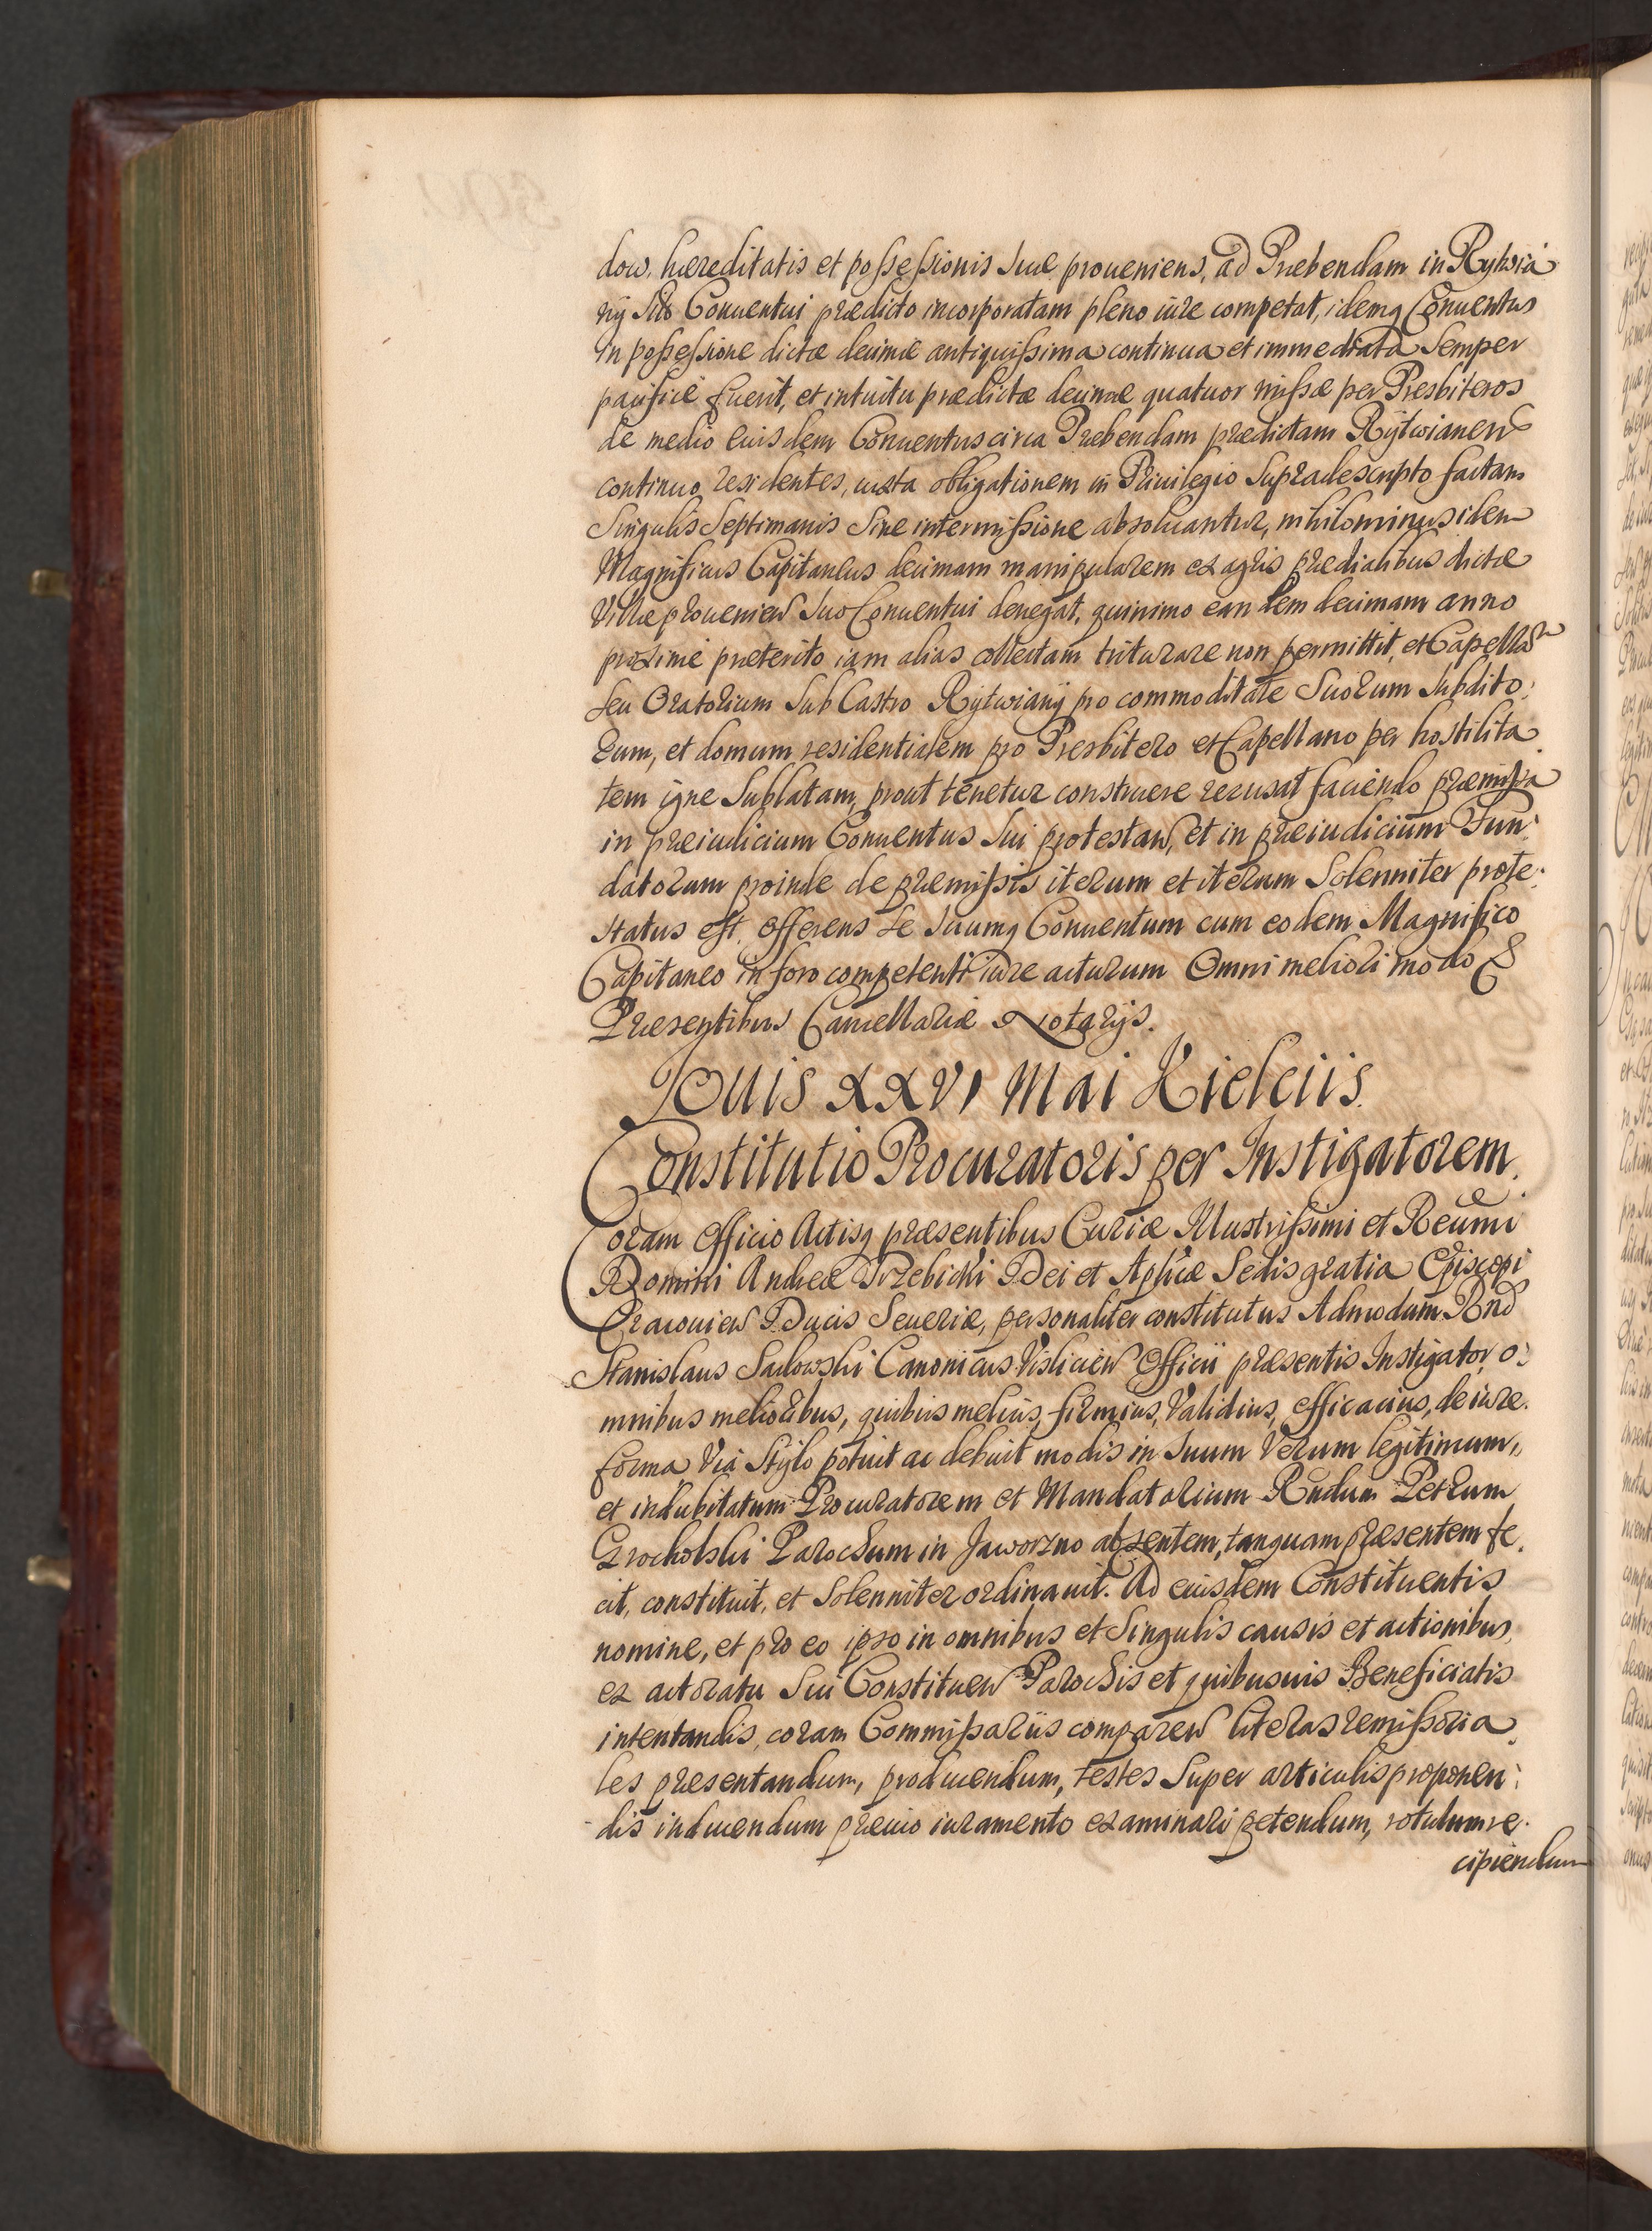 dow, hæreditatis et possessionis suæ proueniens, ad Præbendam in Rytwia
ny suo Conuentui prædicto incorporatam pleno iure competat, idemq Conuentus
in possessione dictæ decimæ antiquissima continua et immediata semper
pacificè fuerit, et intuitu prædictæ decimæ quatuor missæ per Presbiteros
de medio eiusdem Conuentus circa Præbendam prædictam Rÿtwianen
continuo residentes, iuxta obligationem in Priuilegio supradescripto factam
singulis septimanis sine intermissione absoluantur, nihilominus idem
Magnificus Capitaneus decimam manipularem ex agris prædialibus dictæ
Villæ prouenien suo Conuentui denegat, quinimo eandem decimam anno
proximè præterito iam alias collectam triturare non permittit, et Capellam
seu Oratorium sub Castro Rÿtwianÿ pro commoditate suorum subdito:
rum, et domum residentialem pro Presbitero et Capellano per hostilita
tem igne sublatam, prout tenetur construere recusat faciendo præmissa
in præiudicium Conuentus sui protestan, et in præiudicium Fun:
datorum proinde de præmissis iterum et iterum solenniter prote:
status est, offerens se suumq Conuentum cum eodem Magnifico
Capitaneo in foro competenti iure acturum Omni meliori modo &
Præsentibus Cancellariæ Notarijs.
Jouis XXVI Mai Kielciis.
Constitutio Procuratoris per Instigatorem.
Coram Officio Actisq præsentibus Curiæ Illustrissimi et Reumi
Domini Andreæ Trzebicki Dei et Aplicæ Sedis gratia Episcopi
Cracouien Ducis Seueriæ, personaliter constitutus Admodum Rnd
Stanislaus Sadowski Canonicus Vislicien Officii præsentis Instigator, o:
mnibus melioribus, quibus melius, firmius, validius, efficacius, de iure.
forma via stÿlo potuit ac debuit modis in suum verum legitimum,
et indubitatum Procuratorem et Mandatarium Rndum Petrum
Grocholski Parochum in Jaworzno absentem, tanquam præsentem fe.
cit, constituit, et solenniter ordinauit. Ad eiusdem Constituentis
nomine, et pro eo ipso in omnibus et singulis causis et actionibus,
ex actoratu sui Constituen Parochis et quibusuis Beneficiatis
intentandis, coram Commissariis comparen literas remissoria.
les præsentandum, producendum, testes super articulis proponen:
dis inducendum præuio iuramento examinari petendum, rotulum re.
cipiendum